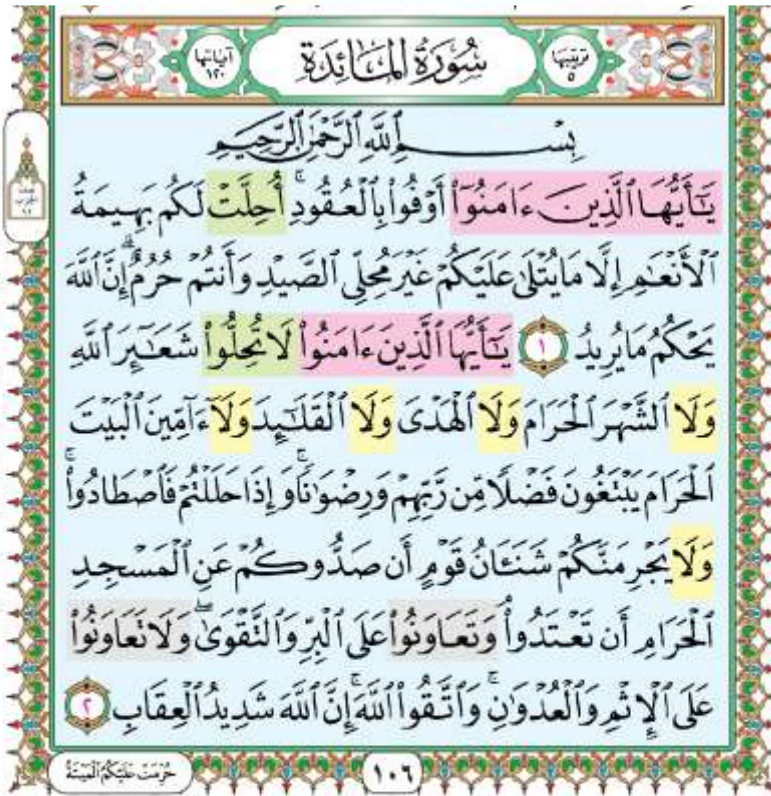 ترتيبها ٥
سُورَةُ المَائِدَةِ
آياتها ١٢٠
بِسْمِ ٱللَّهِ ٱلرَّحْمَٰنِ ٱلرَّحِيمِ
يَٰٓأَيُّهَا ٱلَّذِينَ ءَامَنُوٓا۟ أَوْفُوا۟ بِٱلْعُقُودِ ۚ أُحِلَّتْ لَكُم بَهِيمَةُ
ٱلْأَنْعَٰمِ إِلَّا مَا يُتْلَىٰ عَلَيْكُمْ غَيْرَ مُحِلِّى ٱلصَّيْدِ وَأَنتُمْ حُرُمٌ ۗ إِنَّ ٱللَّهَ
يَحْكُمُ مَا يُرِيدُ ١ يَٰٓأَيُّهَا ٱلَّذِينَ ءَامَنُوا۟ لَا تُحِلُّوا۟ شَعَٰٓئِرَ ٱللَّهِ
وَلَا ٱلشَّهْرَ ٱلْحَرَامَ وَلَا ٱلْهَدْىَ وَلَا ٱلْقَلَٰٓئِدَ وَلَآ ءَآمِّينَ ٱلْبَيْتَ
ٱلْحَرَامَ يَبْتَغُونَ فَضْلًا مِّن رَّبِّهِمْ وَرِضْوَٰنًا ۚ وَإِذَا حَلَلْتُمْ فَٱصْطَادُوا۟ ۚ
وَلَا يَجْرِمَنَّكُمْ شَنَـَٔانُ قَوْمٍ أَن صَدُّوكُمْ عَنِ ٱلْمَسْجِدِ
ٱلْحَرَامِ أَن تَعْتَدُوا۟ ۘ وَتَعَاوَنُوا۟ عَلَى ٱلْبِرِّ وَٱلتَّقْوَىٰ ۖ وَلَا تَعَاوَنُوا۟
عَلَى ٱلْإِثْمِ وَٱلْعُدْوَٰنِ ۚ وَٱتَّقُوا۟ ٱللَّهَ ۖ إِنَّ ٱللَّهَ شَدِيدُ ٱلْعِقَابِ ٢
١٠٦
حُرِّمَتْ عَلَيْكُمُ ٱلْمَيْتَةُ